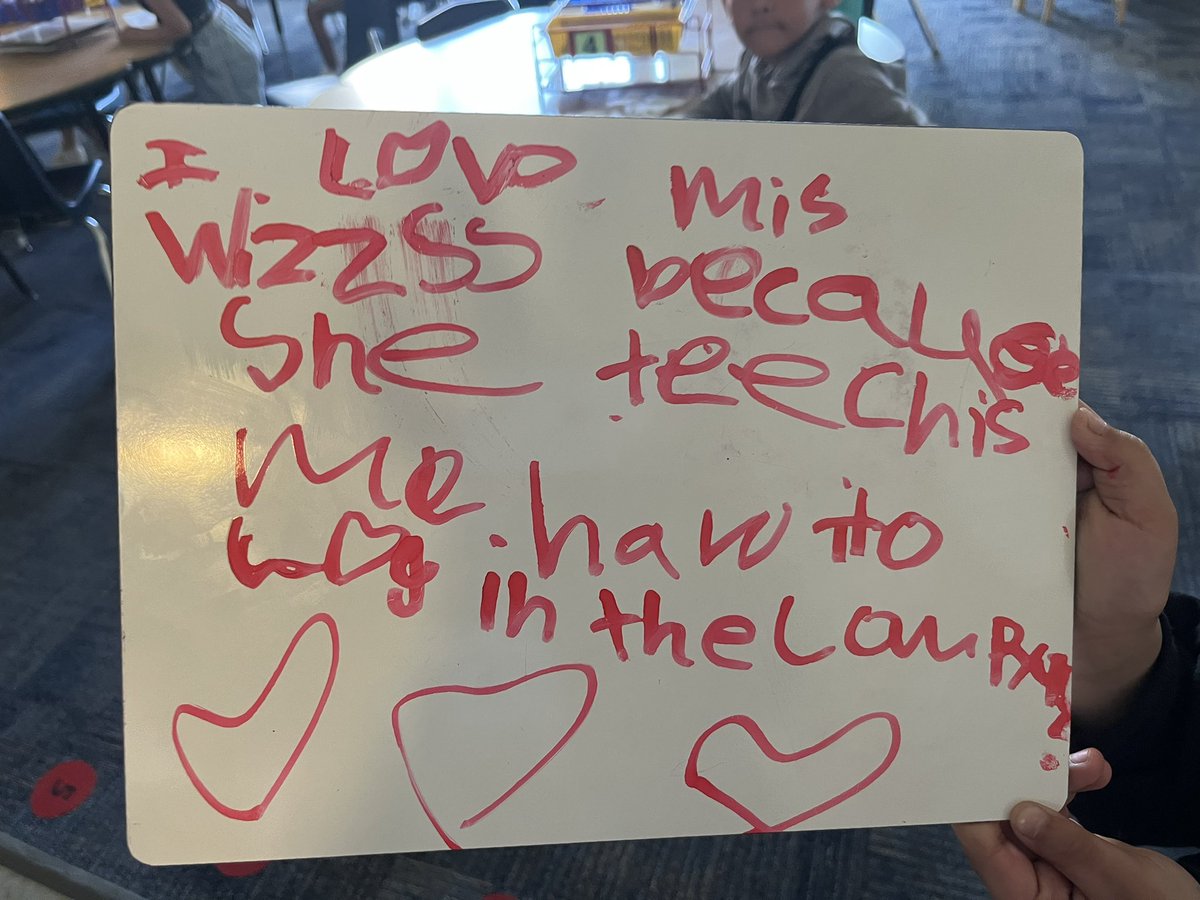 I Lovo Mis
Wizzss because
She teechis
Me haw to
in the Lau